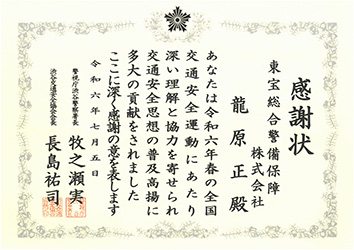 感謝状
東宝総合警備保障
株式会社
龍原正殿
あなたは令和六年春の全国
交通安全運動にあたり
深い理解と協力を寄せられ
交通安全思想の普及高揚に
多大の貢献をされました
ここに深く感謝の意を表します
令和六年七月五日
警視庁渋谷警察署長
牧之瀬実
渋谷交通安全協会会長
長島祐司